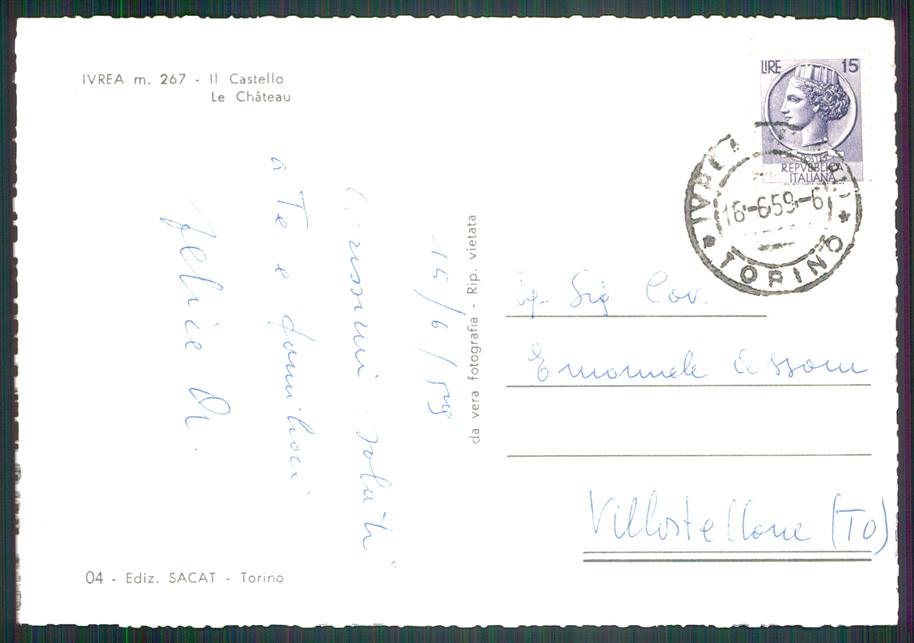 IVREA m. 267 - Il Castello
Le Château
LIRE 15
POSTE
REPVBBLICA
ITALIANA
16-6.59.-6
* TORINO *
15/6/59
Carissimi saluti
a Te e familiari
Felice
da vera fotografia - Rip. vietata
Eg. Sig. Cav.
Emanuele
Villastellone (TO)
04 - Ediz. SACAT - Torino